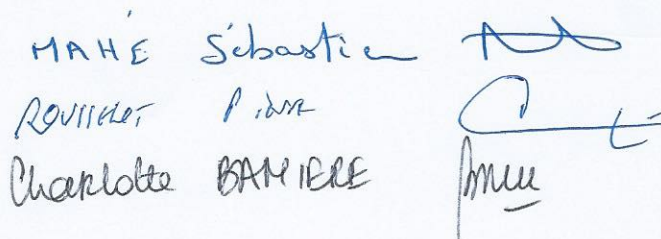 MAHÉ Sébastien
ROUSSELET Pierre
Charlotte BAMIERE